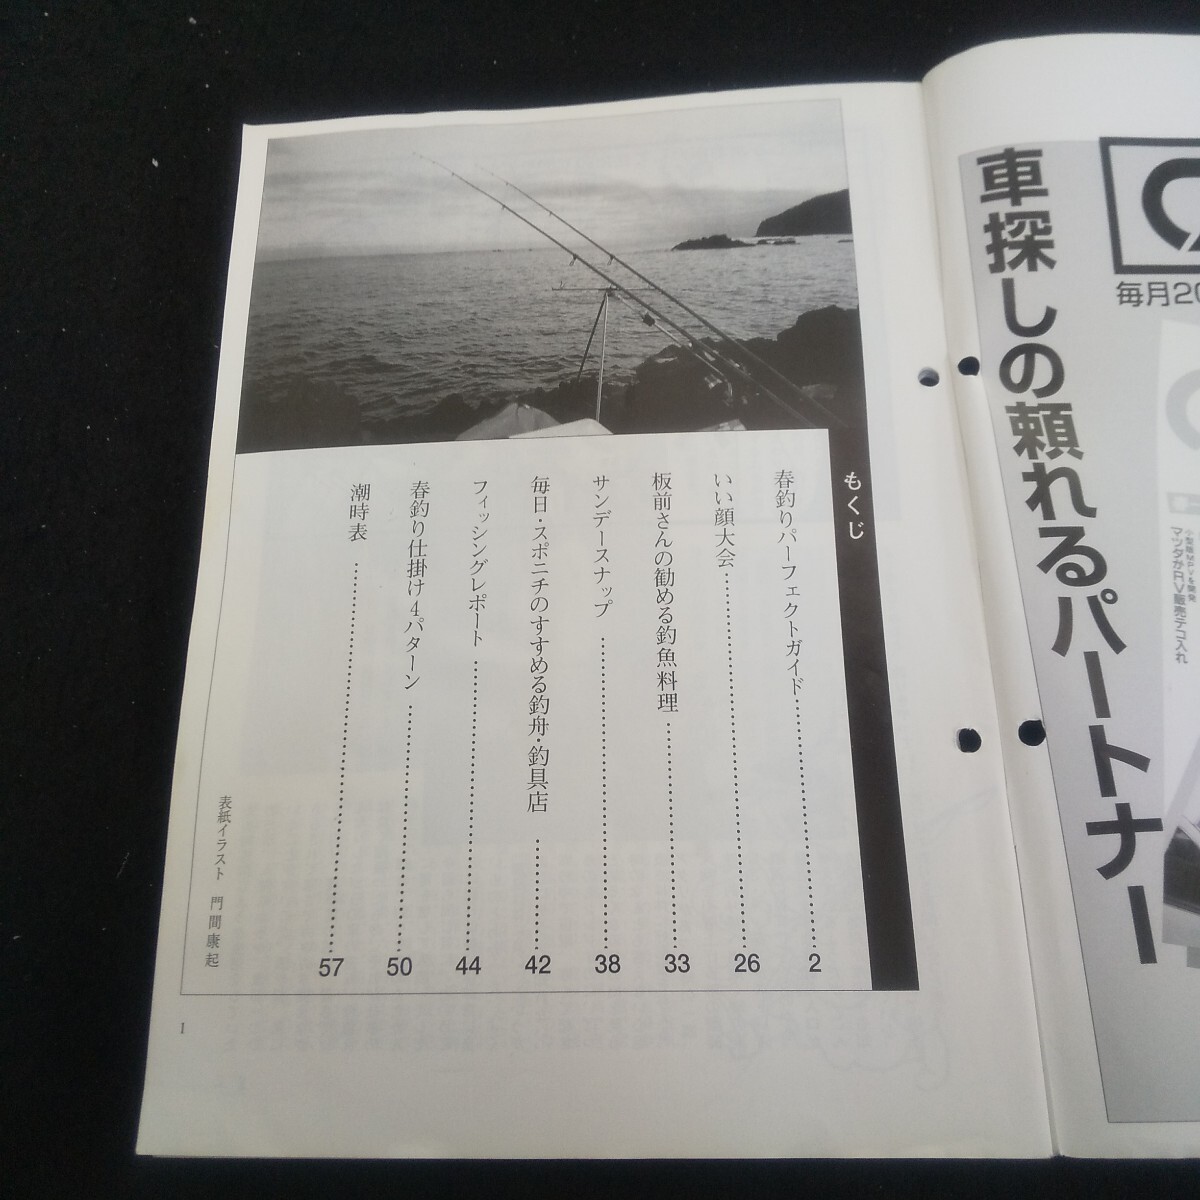 車探しの頼れるパートナー
毎月20
小型版MPVを開発
マツダがRV販売テコ入れ
もくじ
春釣りパーフェクトガイド…………2
いい顔大会…………26
板前さんの勧める釣魚料理…………33
サンデースナップ…………38
毎日・スポニチのすすめる釣舟・釣具店…………42
フィッシングレポート…………44
春釣り仕掛け4パターン…………50
潮時表…………57
表紙イラスト 門間康起
1